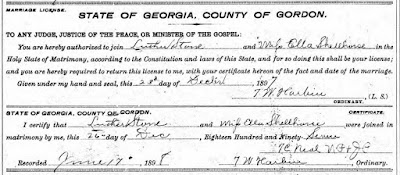 MARRIAGE LICENSE.
STATE OF GEORGIA, COUNTY OF GORDON.
TO ANY JUDGE, JUSTICE OF THE PEACE, OR MINISTER OF THE GOSPEL:
You are hereby authorized to join Luther Stone and Miss Ella Shellhorse in the
Holy State of Matrimony, according to the Constitution and laws of this State, and for so doing this shall be your license;
and you are hereby required to return this license to me, with your certificate hereon of the fact and date of the marriage.
Given under my hand and seal, this 23 day of 1897
T W Harbin (L. S.)
ORDINARY.
STATE OF GEORGIA, COUNTY OF GORDON. CERTIFICATE.
I certify that Luther Stone and Miss Ella Shellhorse were joined in
matrimony by me, this 26 day of Dec, Eighteen Hundred and Ninety-Seven
Neal
Recorded June 17 1898 T W Harbin, Ordinary.